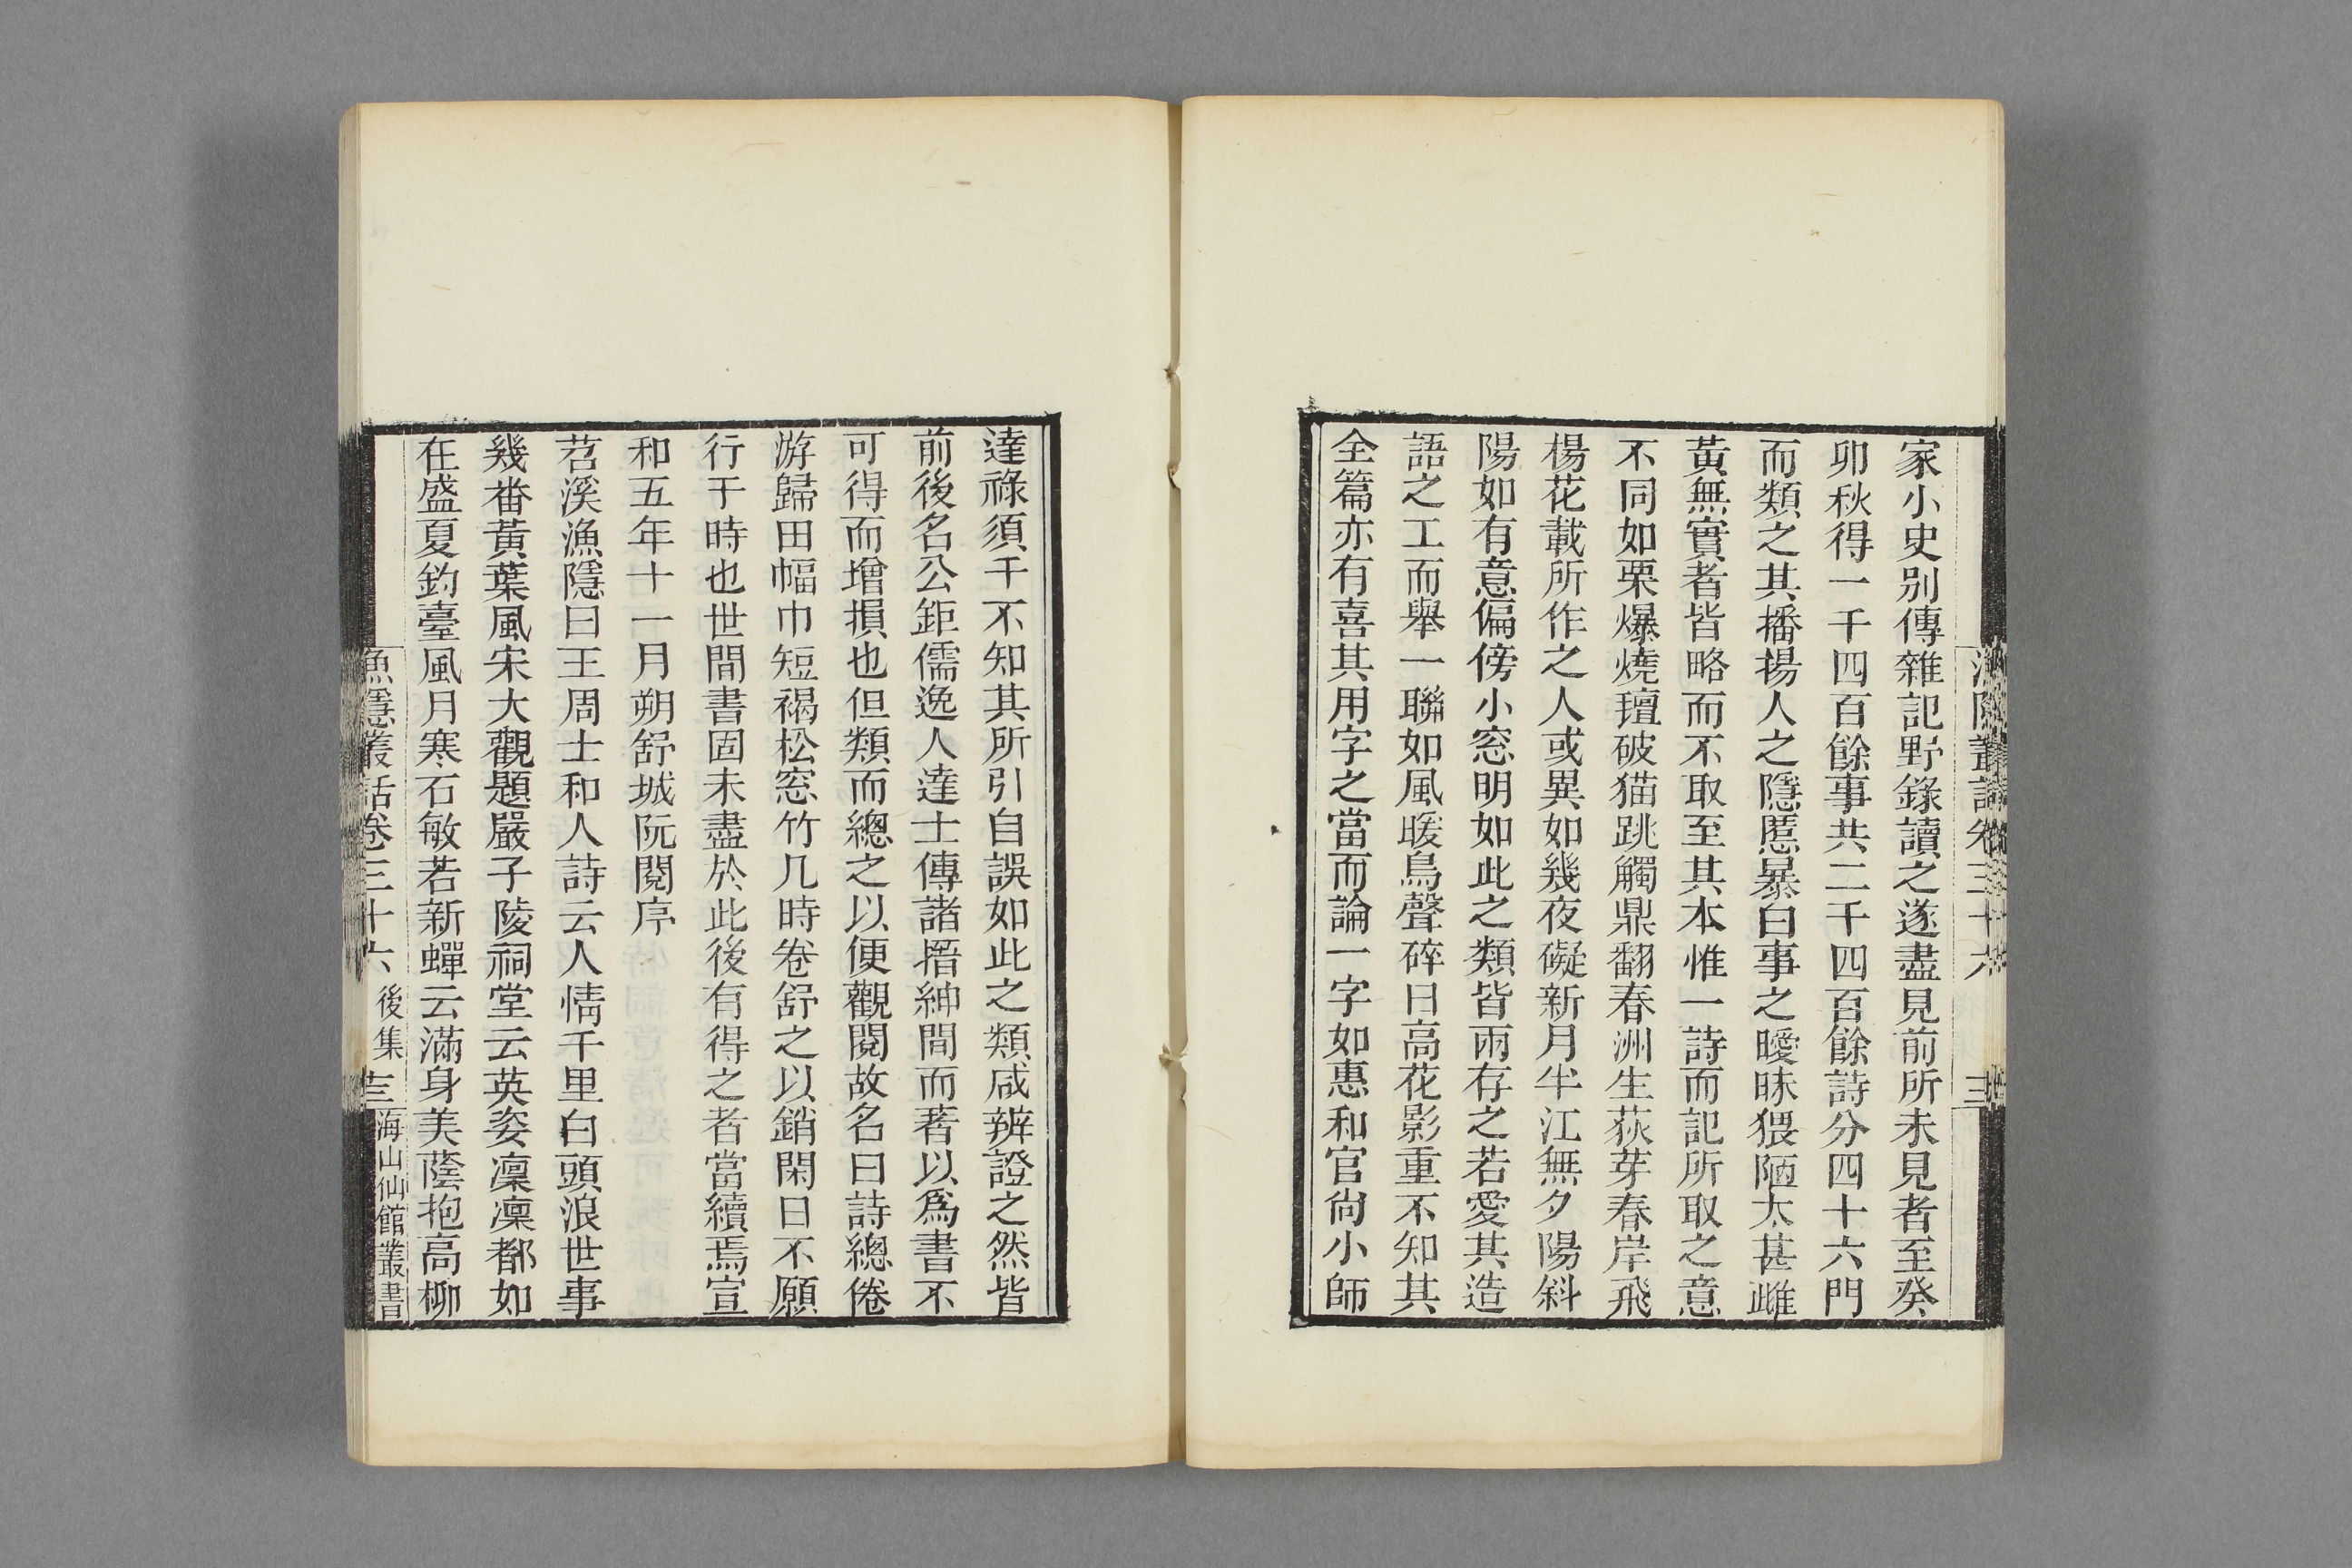 家小史别傳雜記野錄讀之遂盡見前所未見者至癸
卯秋得一千四百餘事共二千四百餘詩分四十六門
而類之其播揚人之隱慝暴白事之曖昧猥陋太甚雌
黃無實者皆略而不取至其本惟一詩而記所取之意
不同如栗爆燒氊破猫跳觸鼎翻春洲生荻芽春岸飛
楊花載所作之人或異如幾夜礙新月半江無夕陽斜
陽如有意偏傍小窓明如此之類皆兩存之若愛其造
語之工而舉一聯如風暖鳥聲碎日高花影重不知其
全篇亦有喜其用字之當而論一字如惠和官尙小師
達祿須干不知其所引自誤如此之類咸辨證之然皆
前後名公鉅儒逸人達士傳諸搢紳間而著以爲書不
可得而增損也但類而總之以便觀閱故名曰詩總倦
游歸田幅巾短褐松窓竹几時卷舒之以銷閑日不願
行于時也世間書固未盡於此後有得之者當續焉宣
和五年十一月朔舒城阮閱序
苕溪漁隱曰王周士和人詩云人情千里白頭浪世事
幾畨黃葉風宋大觀題嚴子陵祠堂云英姿凜凜都如
在盛夏釣臺風月寒石敏若新蟬云滿身美蔭抱高柳
漁隱叢話卷三十六 後集 海山仙館叢書